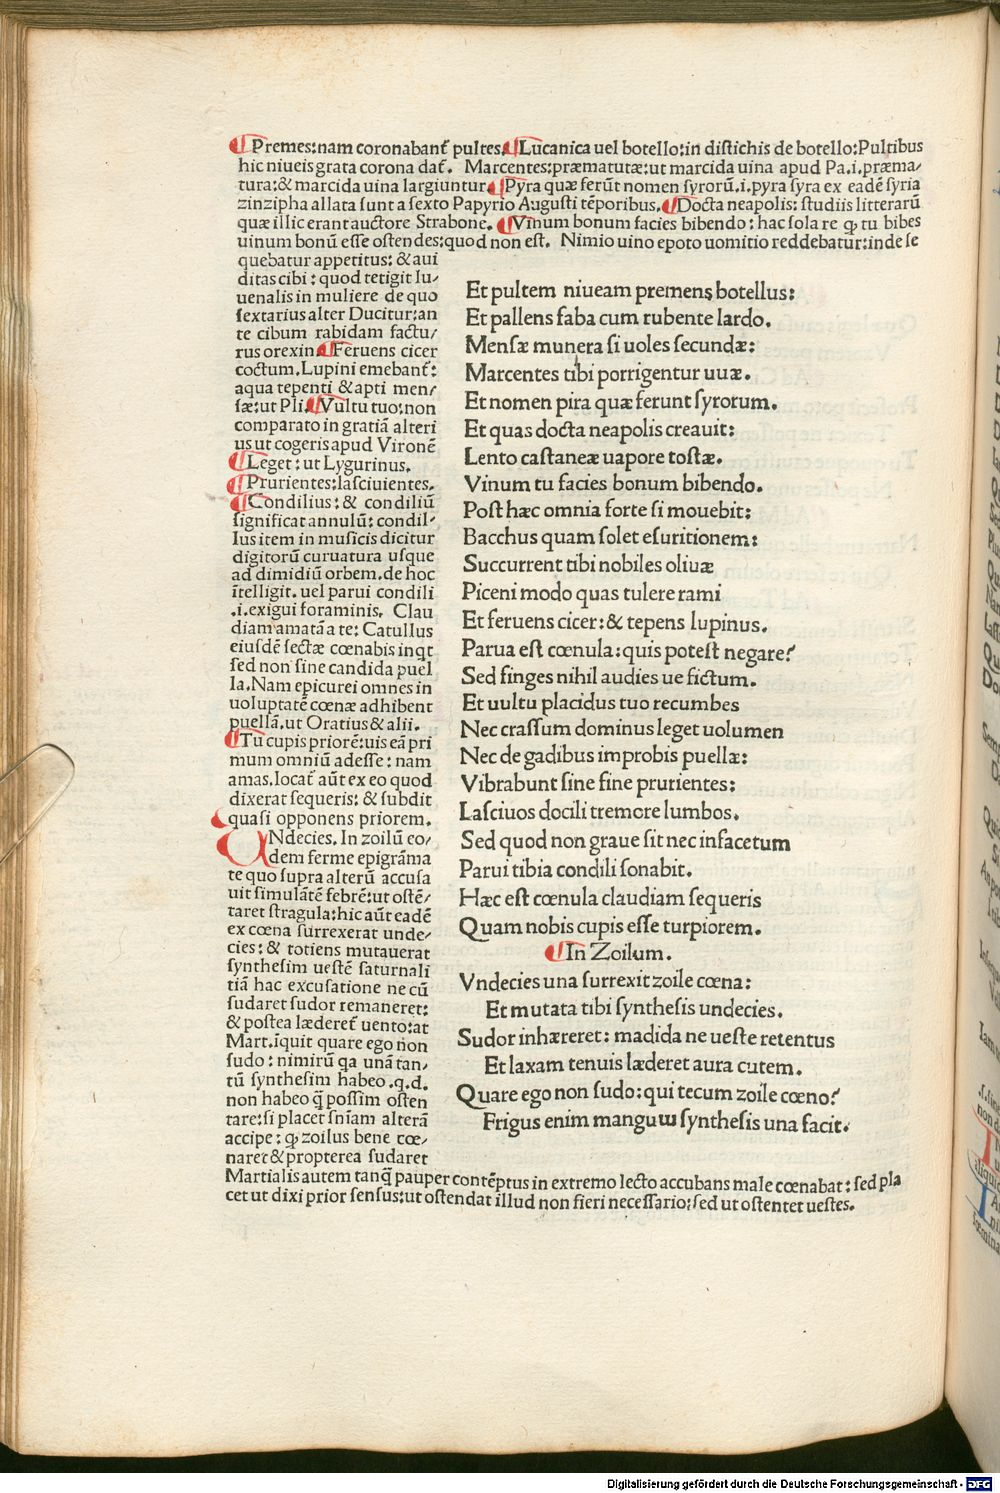 ¶Premes:nam coronabant̃ pultes.¶Lucanica uel botello:in distichis de botello:Pultibus
hic niueis grata corona dat̃. Marcentes:præmaturæ:ut marcida uina apud Pa.i.præma/
tura:& marcida uina largiuntur.¶Pyra quæ ferũt nomen syrorũ.i.pyra syra ex eadẽ syria
zinzipha allata sunt a sexto Papyrio Augusti tẽporibus.¶Docta neapolis: studiis litterarũ
quæ illic erant auctore Strabone.¶Vinum bonum facies bibendo: hac sola re ꝙ tu bibes
uinum bonũ esse ostendes:quod non est. Nimio uino epoto uomitio reddebatur:inde se
quebatur appetitus: & aui
ditas cibi: quod tetigit Iu/
uenalis in muliere de quo
sextarius alter Ducitur:an
te cibum rabidam factu/
rus orexin.¶Feruens cicer
coctum.Lupini emebant̃:
aqua tepenti & apti men/
sæ:ut Pli.¶Vultu tuo:non
comparato in gratiã alteri
us ut cogeris apud Vironẽ
¶Leget: ut Lygurinus.
¶Prurientes:lasciuientes.
¶Condilius: & condiliũ
significat annulũ: condil/
lus item in musicis dicitur
digitorũ curuatura usque
ad dimidiũ orbem.de hoc
ĩtelligit. uel parui condili
.i.exigui foraminis. Clau
diam amatã a te: Catullus
eiusdẽ sectæ cœnabis inqt
sed non sine candida puel
la.Nam epicurei omnes in
uoluptatẽ cœnæ adhibent
puellã.ut Oratius & alii.
¶Tu cupis priorẽ:uis eã pri
mum omniũ adesse: nam
amas.Iocat̃ aũt ex eo quod
dixerat sequeris: & subdit
quasi opponens priorem.
VNdecies. In zoilũ eo/
dem ferme epigrãma
te quo supra alterũ accusa
uit simulãtẽ febrẽ:ut ostẽ/
taret stragula:hic aũt eadẽ
ex cœna surrexerat unde/
cies: & totiens mutauerat
synthesim uestẽ saturnali
tiã hac excusatione ne cũ
sudaret sudor remaneret:
& postea læderet̃ uento:at
Mart.iquit quare ego non
sudo: nimirũ qa unã tan/
tũ synthesim habeo .q.d.
non habeo q̃ possim osten
tare:si placet sñiam alterã
accipe: ꝙ zoilus bene cœ/
naret & propterea sudaret
Martialis autem tanq̃ pauper contẽptus in extremo lecto accubans male cœnabat: sed pla
cet ut dixi prior sensus:ut ostendat illud non fieri necessario:sed ut ostentet uestes.
Et pultem niueam premens botellus:
Et pallens faba cum rubente lardo.
Mensæ munera si uoles secundæ:
Marcentes tibi porrigentur uuæ.
Et nomen pira quæ ferunt syrorum.
Et quas docta neapolis creauit:
Lento castaneæ uapore tostæ.
Vinum tu facies bonum bibendo.
Post hæc omnia forte si mouebit:
Bacchus quam solet esuritionem:
Succurrent tibi nobiles oliuæ
Piceni modo quas tulere rami
Et feruens cicer: & tepens lupinus.
Parua est cœnula: quis potest negare?
Sed finges nihil audies ue fictum.
Et uultu placidus tuo recumbes
Nec crassum dominus leget uolumen
Nec de gadibus improbis puellæ:
Vibrabunt sine fine prurientes:
Lasciuos docili tremore lumbos.
Sed quod non graue sit nec infacetum
Parui tibia condili sonabit.
Hæc est cœnula claudiam sequeris
Quam nobis cupis esse turpiorem.
¶In Zoilum.
Vndecies una surrexit zoile cœna:
Et mutata tibi synthesis undecies.
Sudor inhæreret: madida ne ueste retentus
Et laxam tenuis læderet aura cutem.
Quare ego non sudo: qui tecum zoile cœno?
Frigus enim manguɯ synthesis una facit.
Digitalisierung gefördert durch die Deutsche Forschungsgemeinschaft - DFG